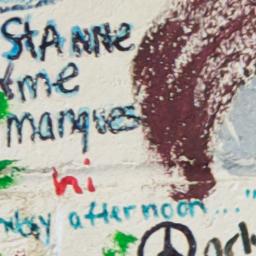 StANNE
me
manques
hi
afternoon..."